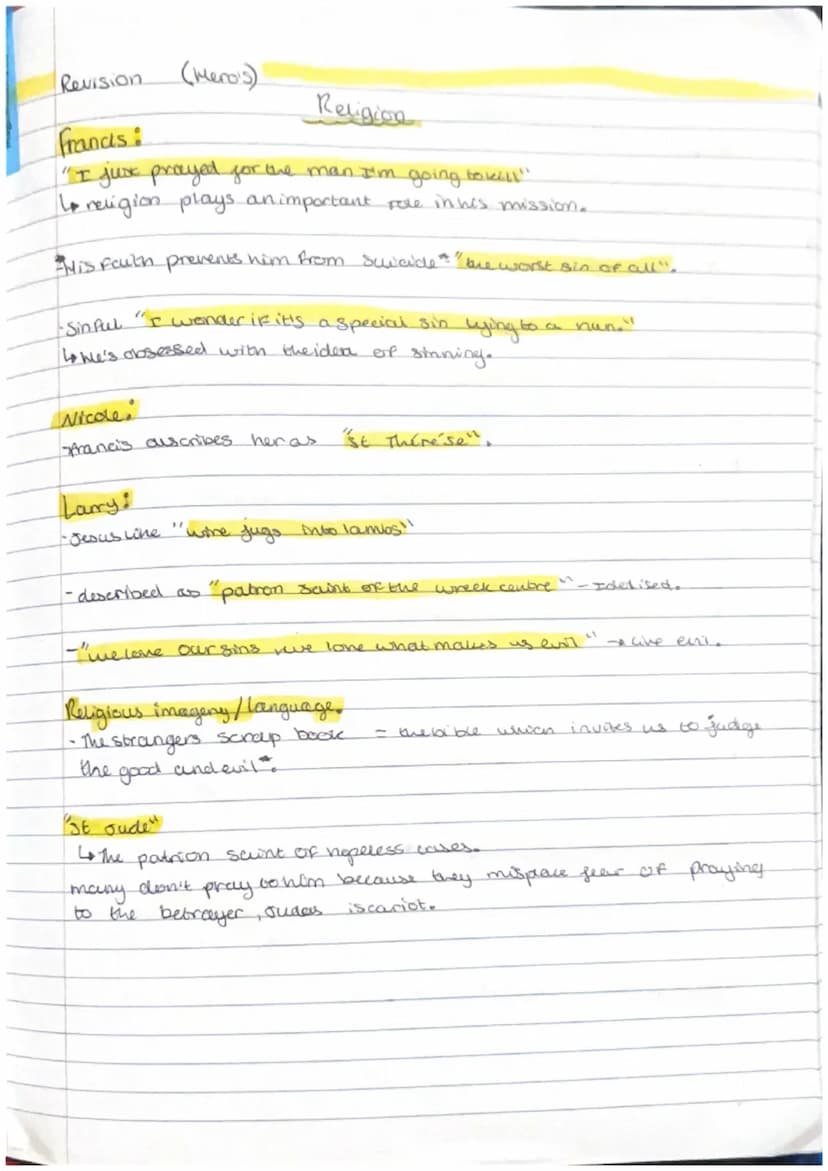 Revision (Hero's)
Religion
Francis:
"I just prayed for the man I'm going to kill"
↳ religion plays an important role in his mission.
*His faith prevents him from suicide* "the worst sin of all".
·Sinful "I wonder if it's a special sin lying to a nun."
↳ He's obsessed with the idea of sinning.
Nicole:
-Francis describes her as "St Thérèse".
Larry:
-Jesus like "wire jugs into lambs"
-described as "patron saint of the wreck centre" - Idelised.
-"we love our sins, we love what makes us evil" → evil.
Religious imagery/language.
- The strangers scrap book = the bible which invites us to judge
the good and evil*.
"St Jude"
↳ The patrion saint of hopeless cases.
many don't pray to him because they misplace fear of praying
to the betrayer, Judas iscariot.